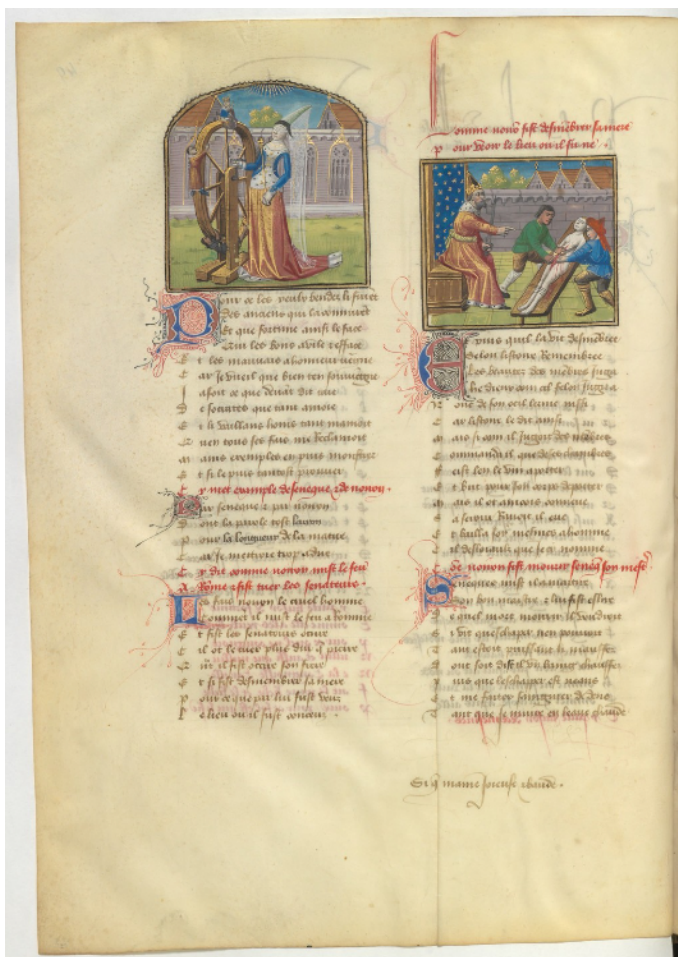 Pour ce les veulx bender li firent
Des anciens qui la
Et que fortune ainsi le face
Qui les bons avile & efface
Et les mauvais a honneur
Car Je vueil que bien ten
J a soit ce que devant dit
De socrates que tant amoie
Et li vaillans homs tant mamoit
Quen tous ses fais me reclamoit
Mains exemples en puis
Et si le puis tantost prouver
Cy met example de seneque & de noiron.
Par seneque & par noiron
Dont la parole tost lairon
Pour la longueur de la matire
Car Je mettroie trop a dire
Cy dit comme noiron mist le feu
A Rome & fist tuer les senateurs.
Les fais noiron le cruel homme
Comment il mist le feu a Romme
Et fist les senateurs occire
Cil ot le cuer plus dur que pierre
Qui il fist occire son frere
Et si fist desmembrer sa mere
Pour ce que par lui fust veuz
Le lieu ou il fust conceuz.
Comme noiron fist desmembrer sa mere
Pour veoir le lieu ou il fu ne.
Et puis quil la vit desmembree
Selon listoire Remembree
Les beautez des membres juga
He dieux com cil felon juga
Onc de son oeil lerme nissi
Car listoire le dit ainsi
Mais si com il Jugoit des membres
Commanda il que de ses chambres
Feist len le vin apporter
Et but pour son corps deporter
Mais il ot aincois
Sa seroir
Et bailla soy mesmes a homme
Cil desloyaulx que Je cy nomme
Ce noiron fist mourir seneque son maistre
Seneque mist il a martire
Son bon maistre & lui fist eslire
De quel mort morir il vouldroit
Cil vit queschapper nen pourroit
Tant estoit puissant li
Dont soit dist il un baing chauffez
Puis que leschapper est neans
Et me faites seingner dedens
Tant que Je muire en leaue chaude
Si que mame joieuse & baude.